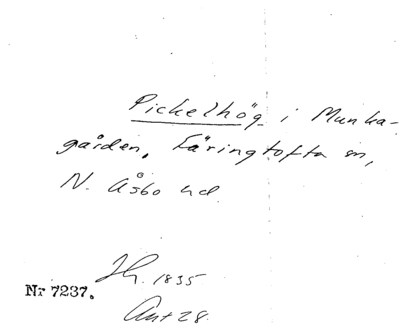 Pickelhög i Munka-
gården, Färingtofta sn,
N. Åsbo hd.
Jh. 1835
Nr 7237.
Ant 28.